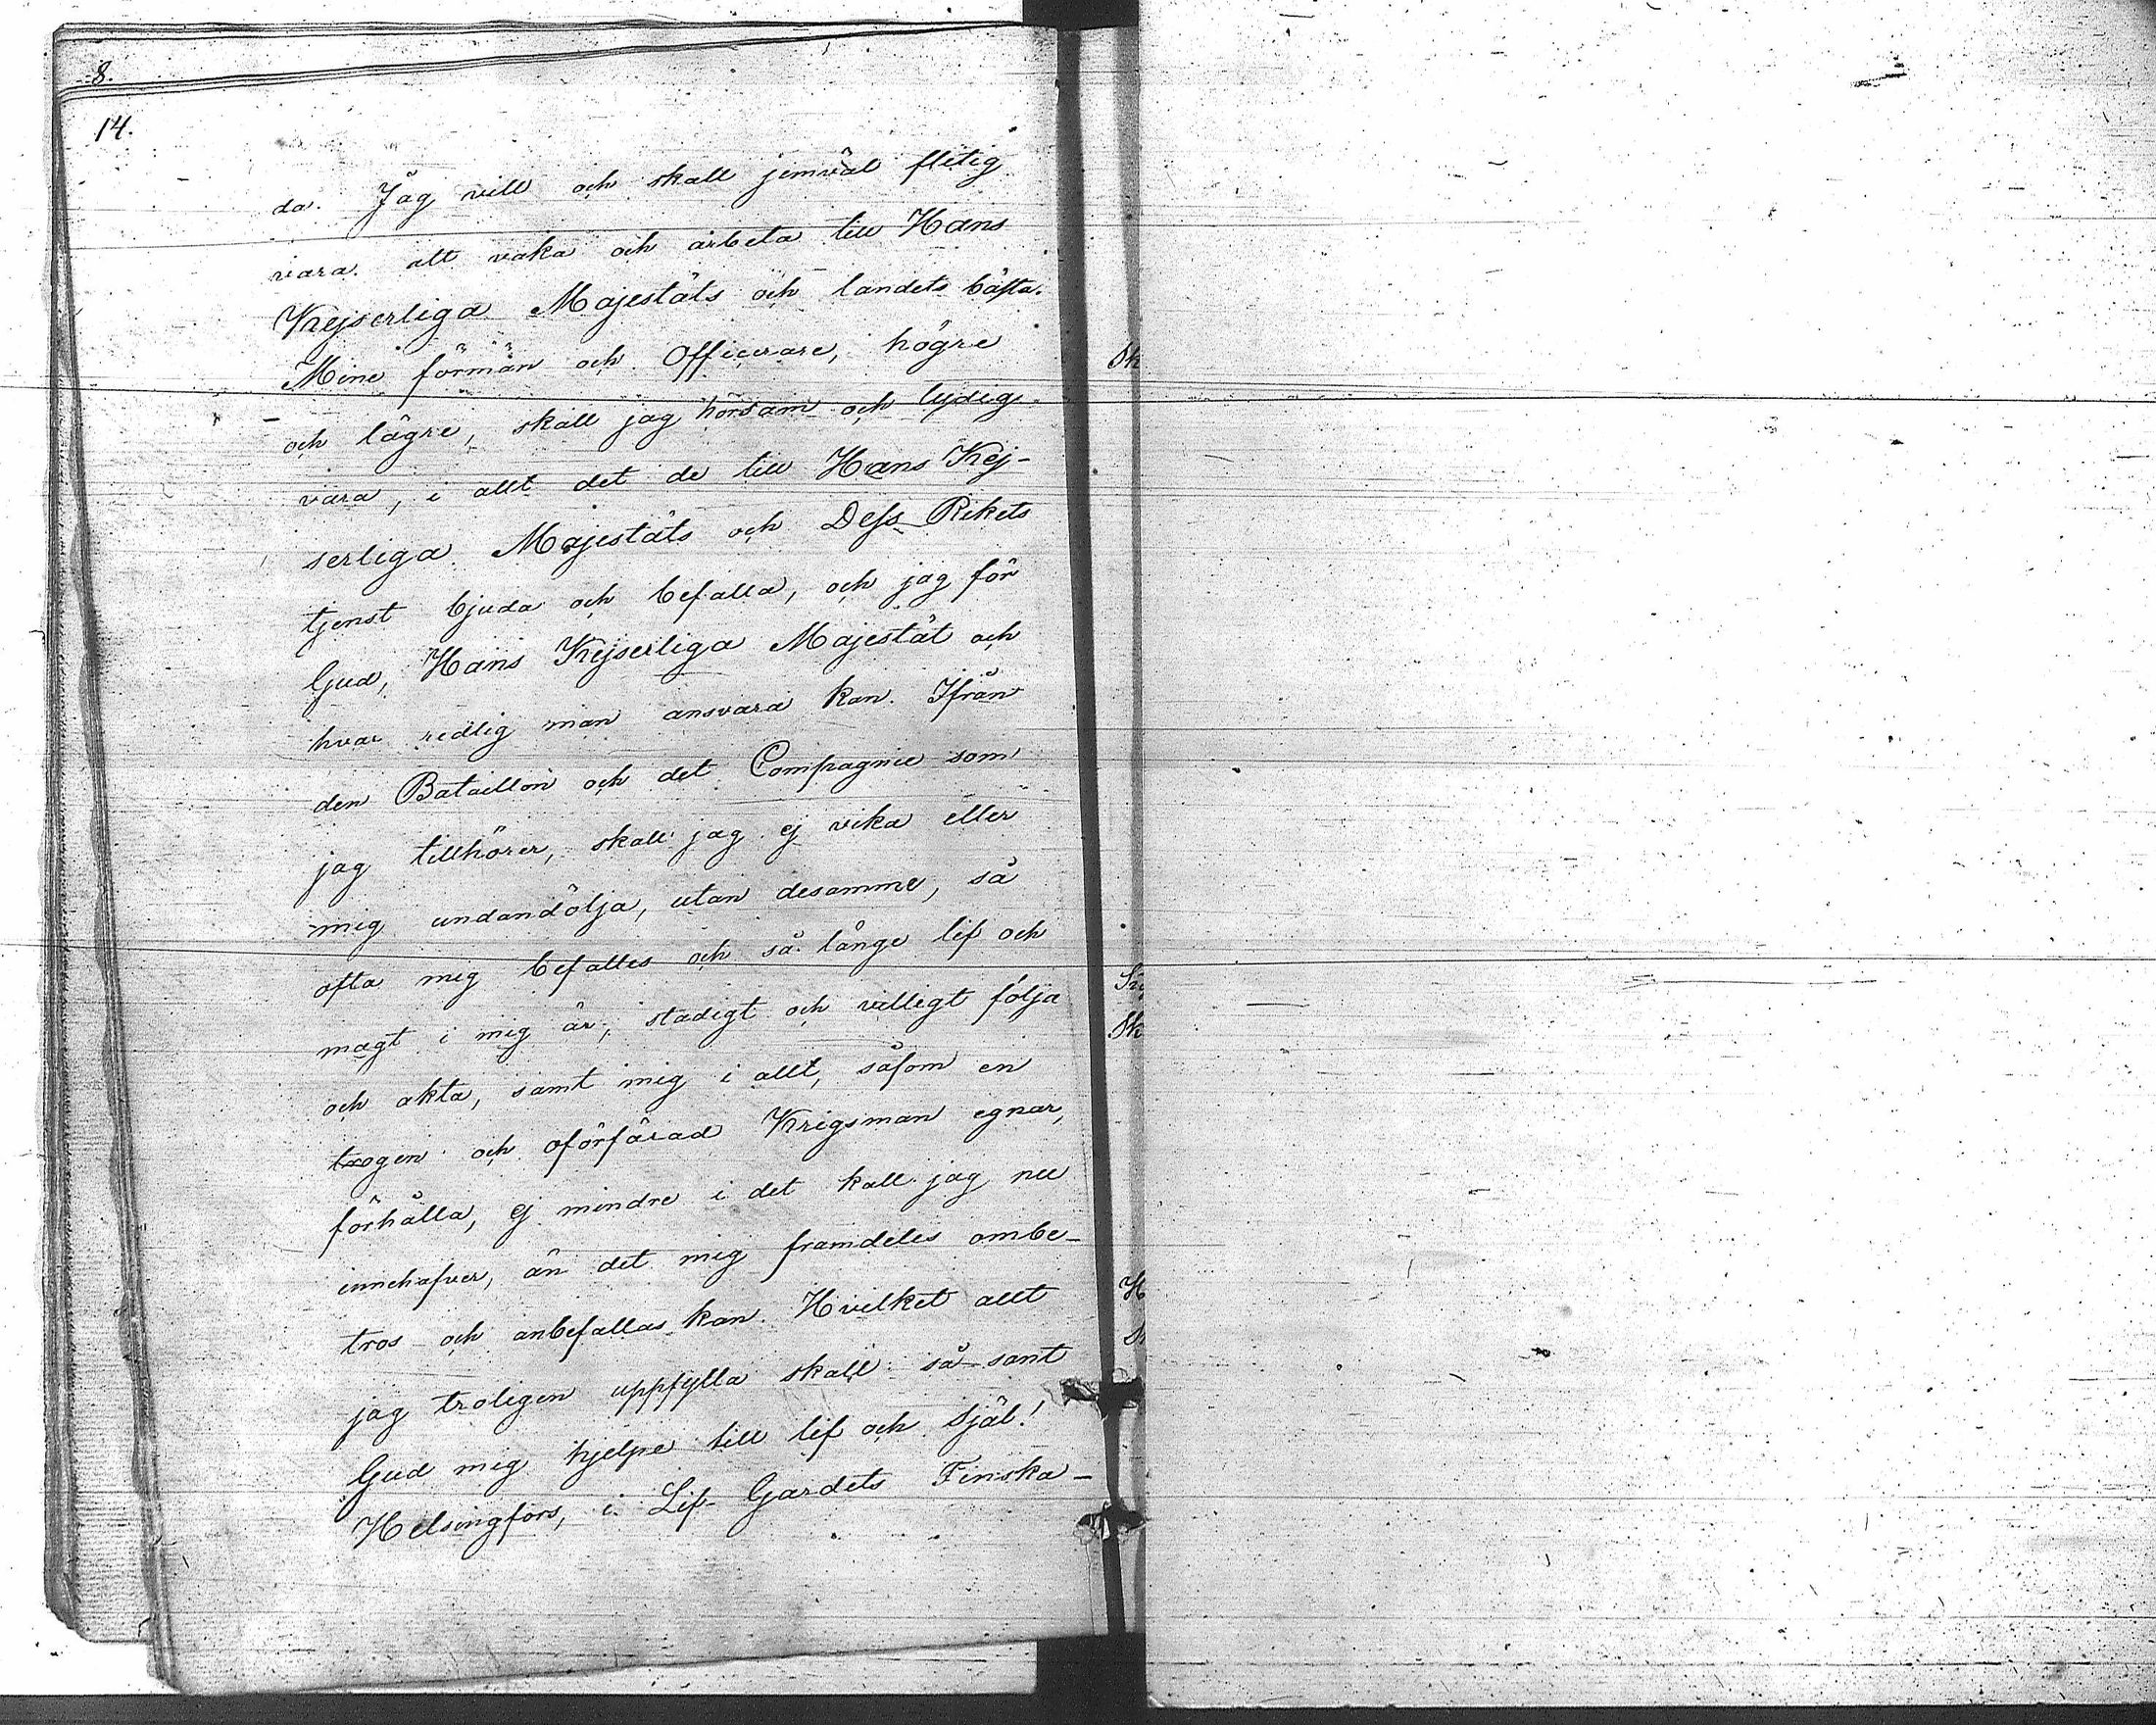 8.
14.
da. Jag vill och skall jemväl flitig
vara att vaka och arbeta till Hans
Kejserliga Majestäts och landets bästa.
Mine förmän och Officerare, högre
och lägre, skall jag hörsam och lydig
vara, i allt det de till Hans Kej-
serliga Majestäts och Dess Rikets
tjenst bjuda och befalla, och jag för
Gud, Hans Kejserliga Majestät och
hvar redlig man ansvara kan. Ifrån
den Bataillon och det Compagnie som
jag tillhörer, skall jag ej vika eller
mig undandölja, utan desamme, så
ofta mig befalles och så länge lif och
magt i mig är, stadigt och villigt följa
och akta, samt mig i allt, såsom en
trogen och oförfärad Krigsman egnar,
förhålla, ej mindre i det kall jag nu
innehafver, än det mig framdeles ombe-
tros och anbefallas kan. Hvilket allt
jag troligen uppfylla skall så sant
Gud mig hjelpe till lif och Själ!
Helsingfors, i Lif-Gardets Finska-
Sk
Sk
H